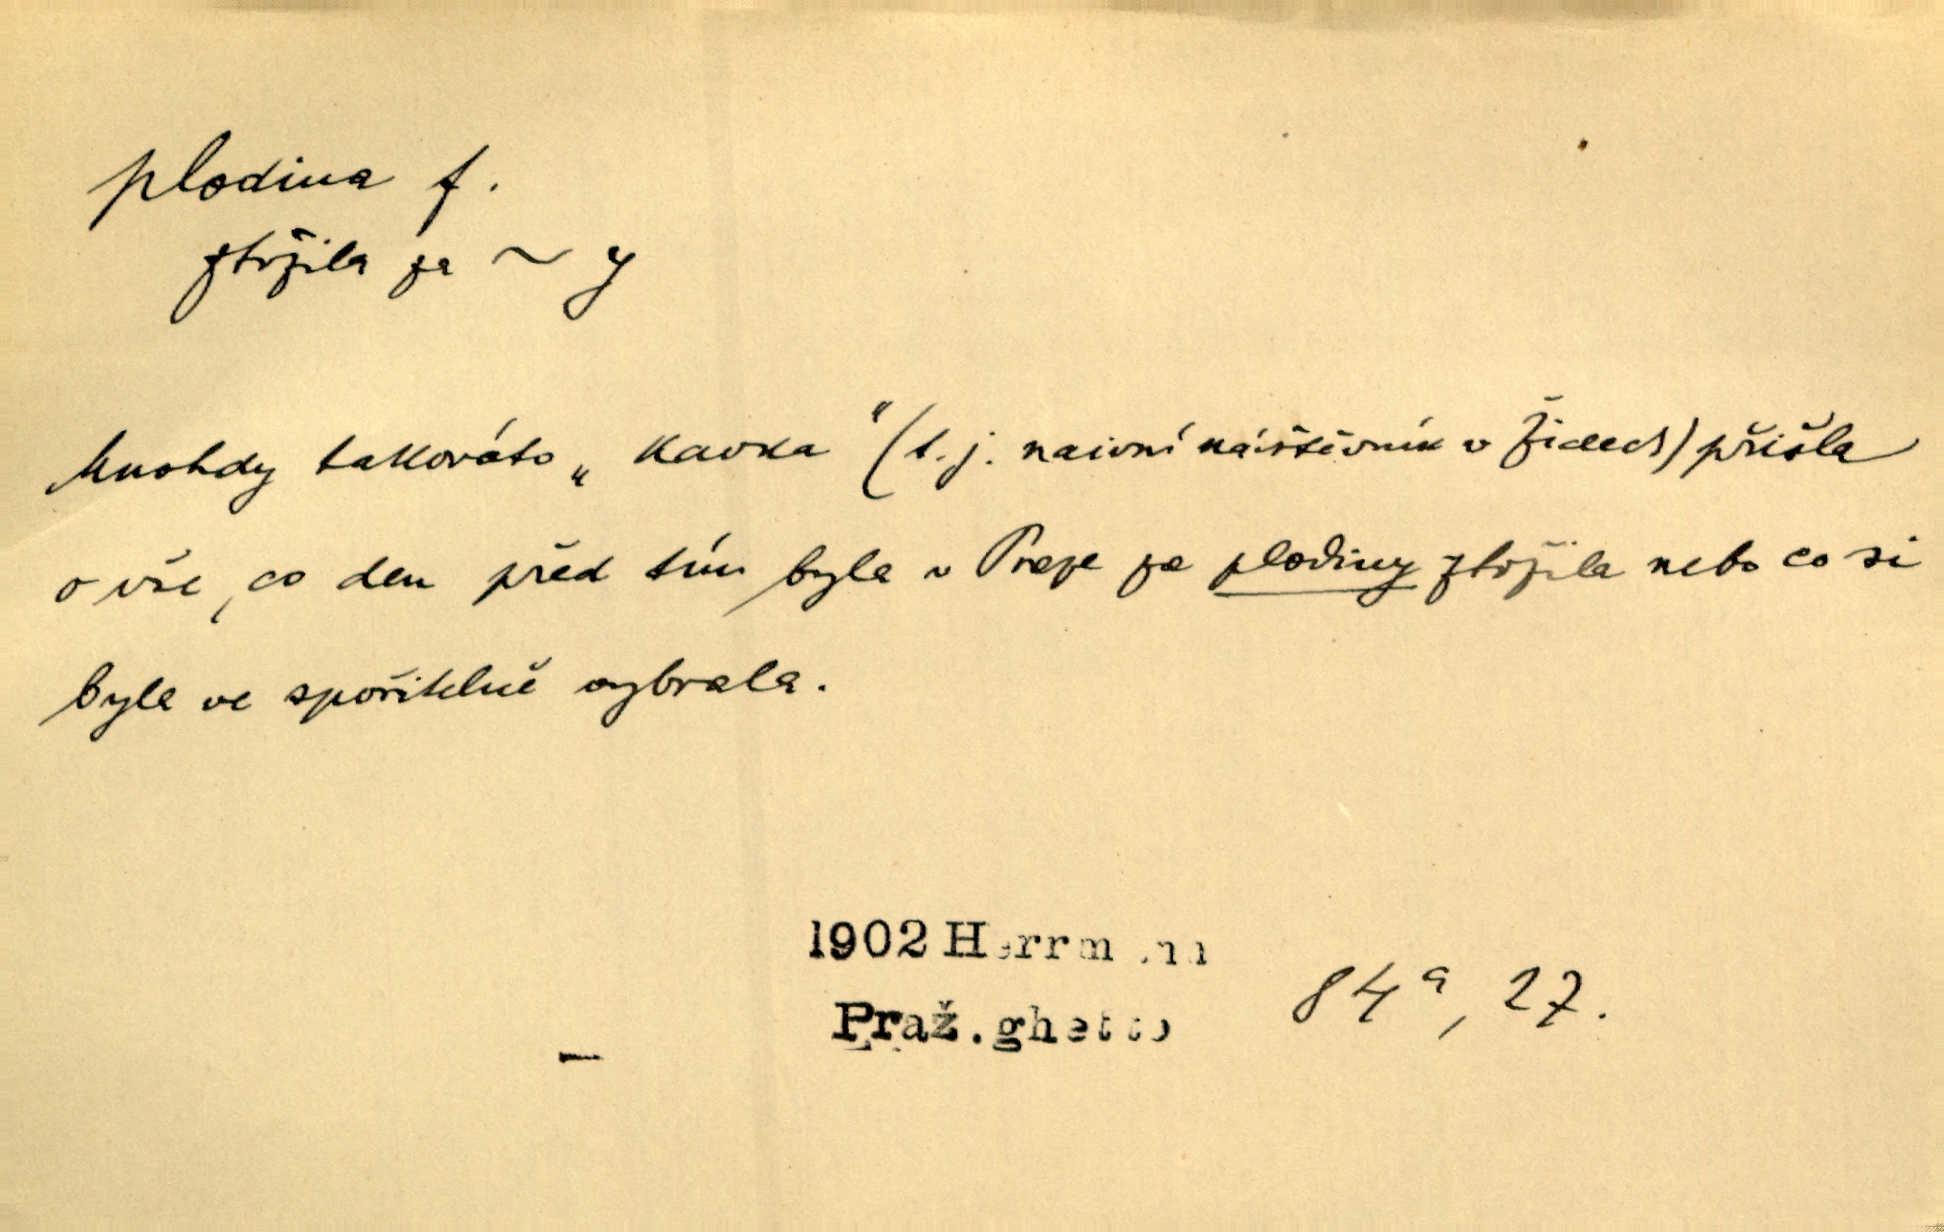 plodina f.
ztržila za ~ y
Mnohdy takováto „kavka“ (t. j. naivní návštěvník v Židech) přišla
o vše, co den před tím byla v Praze za plodiny ztržila nebo co si
byla ve spořitelně vybrala.
1902 Herrmann
Praž. ghetto 84a, 27.